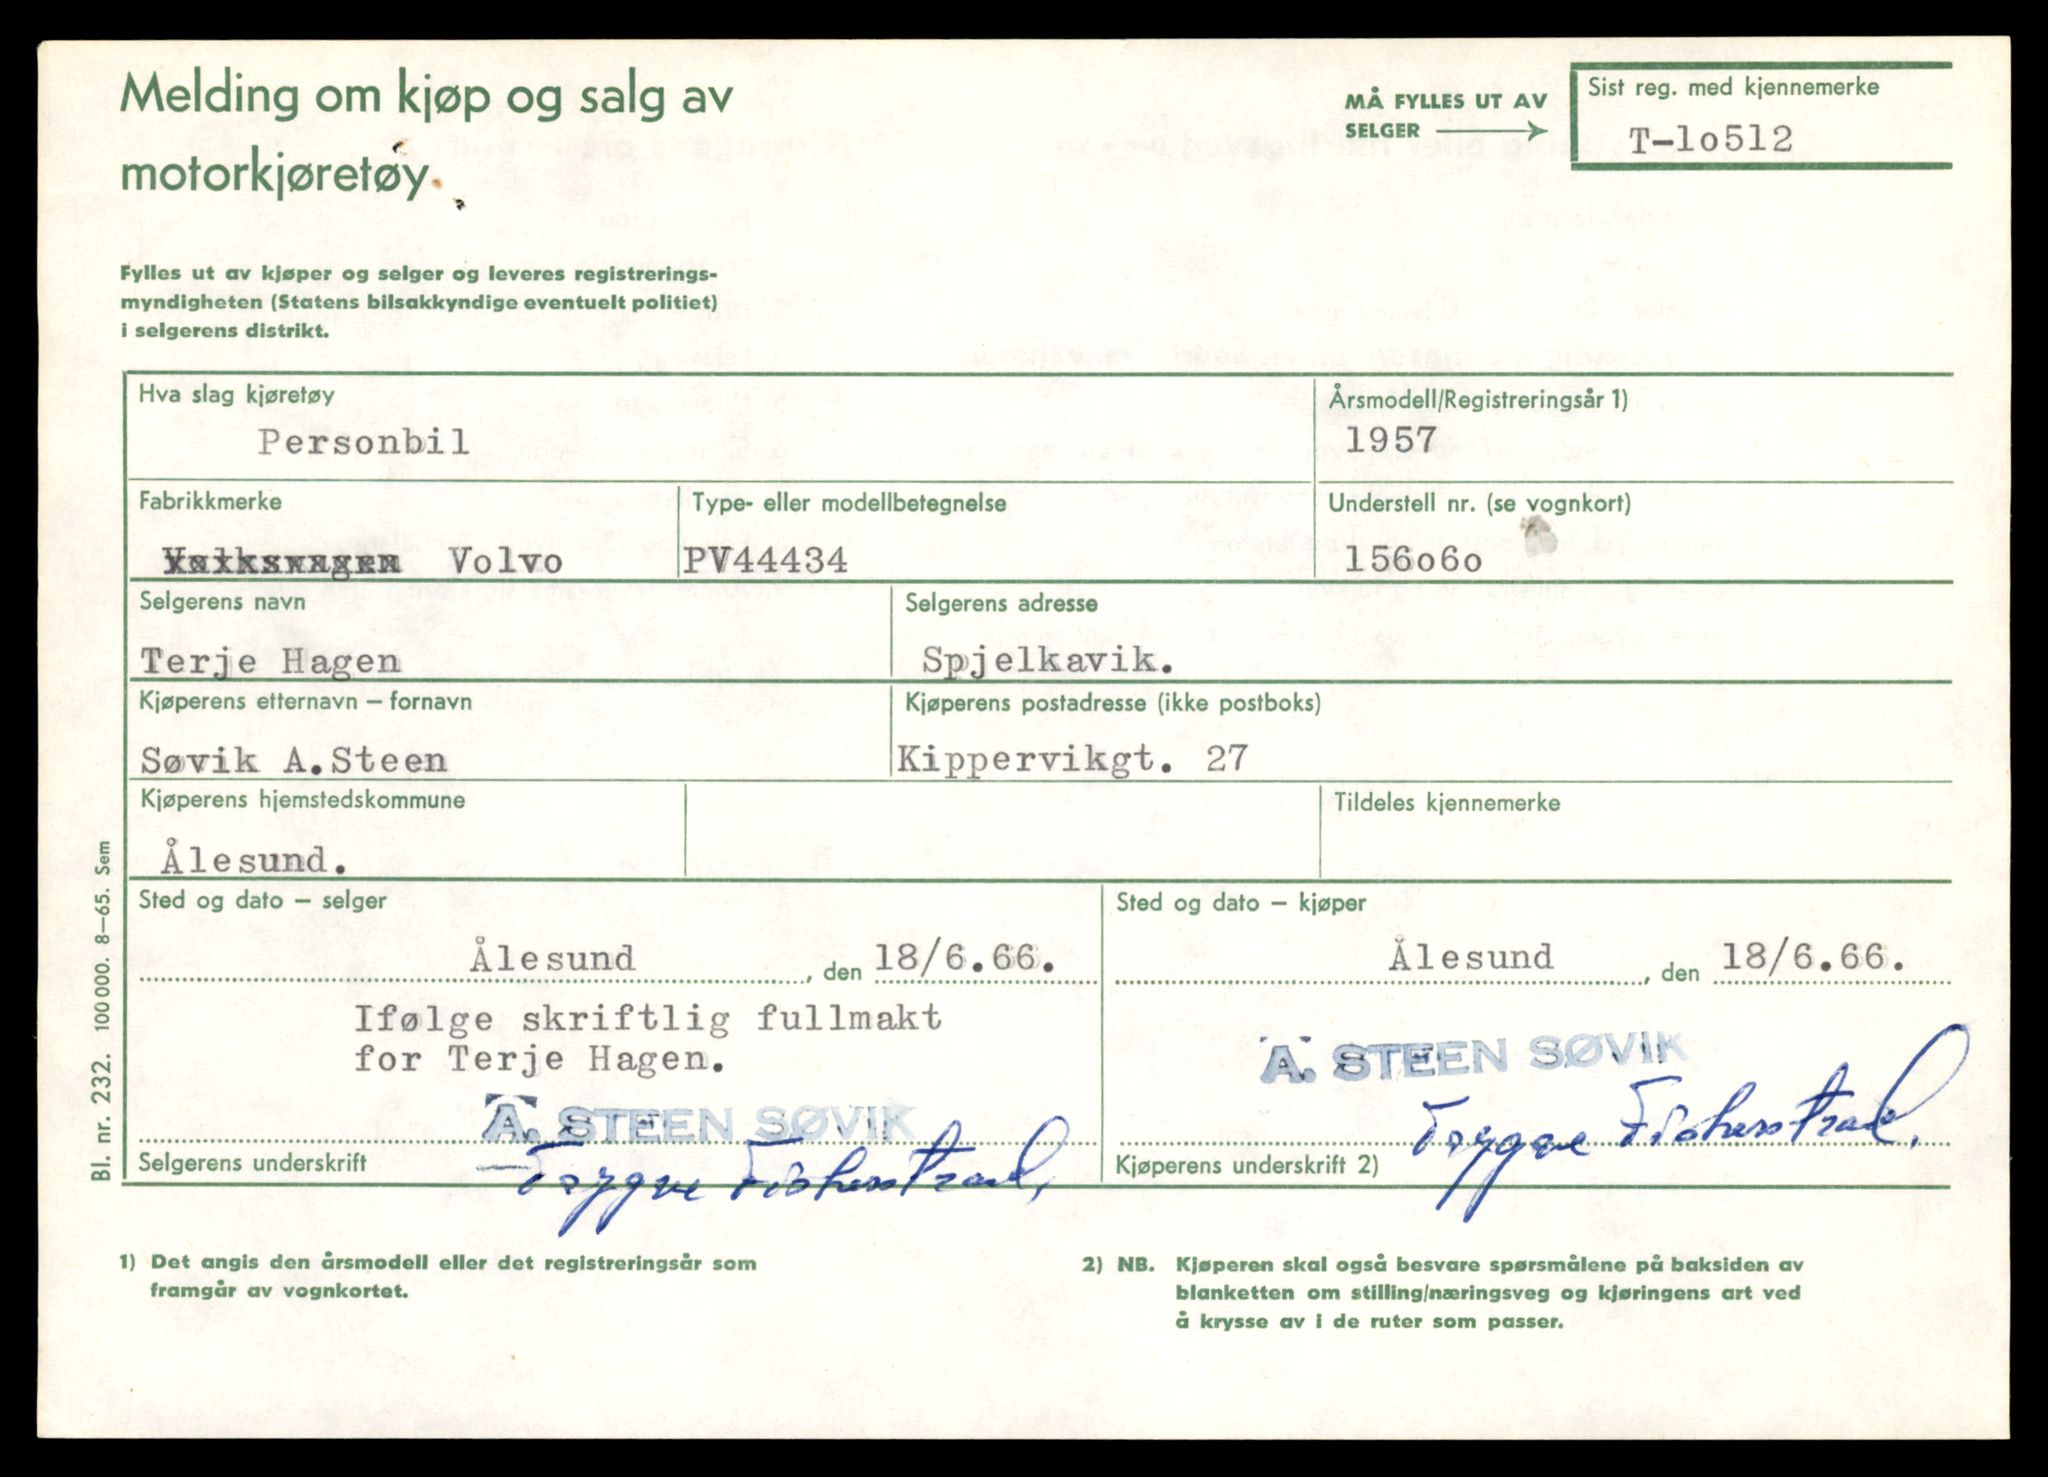 Melding om kjøp og salg av
motorkjøretøy
MÅ FYLLES UT AV
SELGER
Sist reg. med kjennemerke
T-1o512
Fylles ut av kjøper og selger og leveres registrerings-
myndigheten (Statens bilsakkyndige eventuelt politiet)
i selgerens distrikt.
Hva slag kjøretøy
Personbil
Årsmodell/Registreringsår 1)
1957
Fabrikkmerke
Volkswagen Volvo
Type- eller modellbetegnelse
PV44434
Understell nr. (se vognkort)
156o6o
Selgerens navn
Terje Hagen
Selgerens adresse
Spjelkavik.
Kjøperens etternavn – fornavn
Søvik A.Steen
Kjøperens postadresse (ikke postboks)
Kippervikgt. 27
Kjøperens hjemstedskommune
Ålesund.
Tildeles kjennemerke
Sted og dato – selger
Ålesund, den 18/6.66.
Ifølge skriftlig fullmakt
for Terje Hagen.
A. STEEN SØVIK
Trygve Fiskerstrand.
Selgerens underskrift
Sted og dato – kjøper
Ålesund, den 18/6.66.
A. STEEN SØVIK
Trygve Fiskerstrand.
Kjøperens underskrift 2)
Bl. nr. 232. 100 000. 8–65. Sem
1) Det angis den årsmodell eller det registreringsår som
framgår av vognkortet.
2) NB. Kjøperen skal også besvare spørsmålene på baksiden av
blanketten om stilling/næringsveg og kjøringens art ved
å krysse av i de ruter som passer.